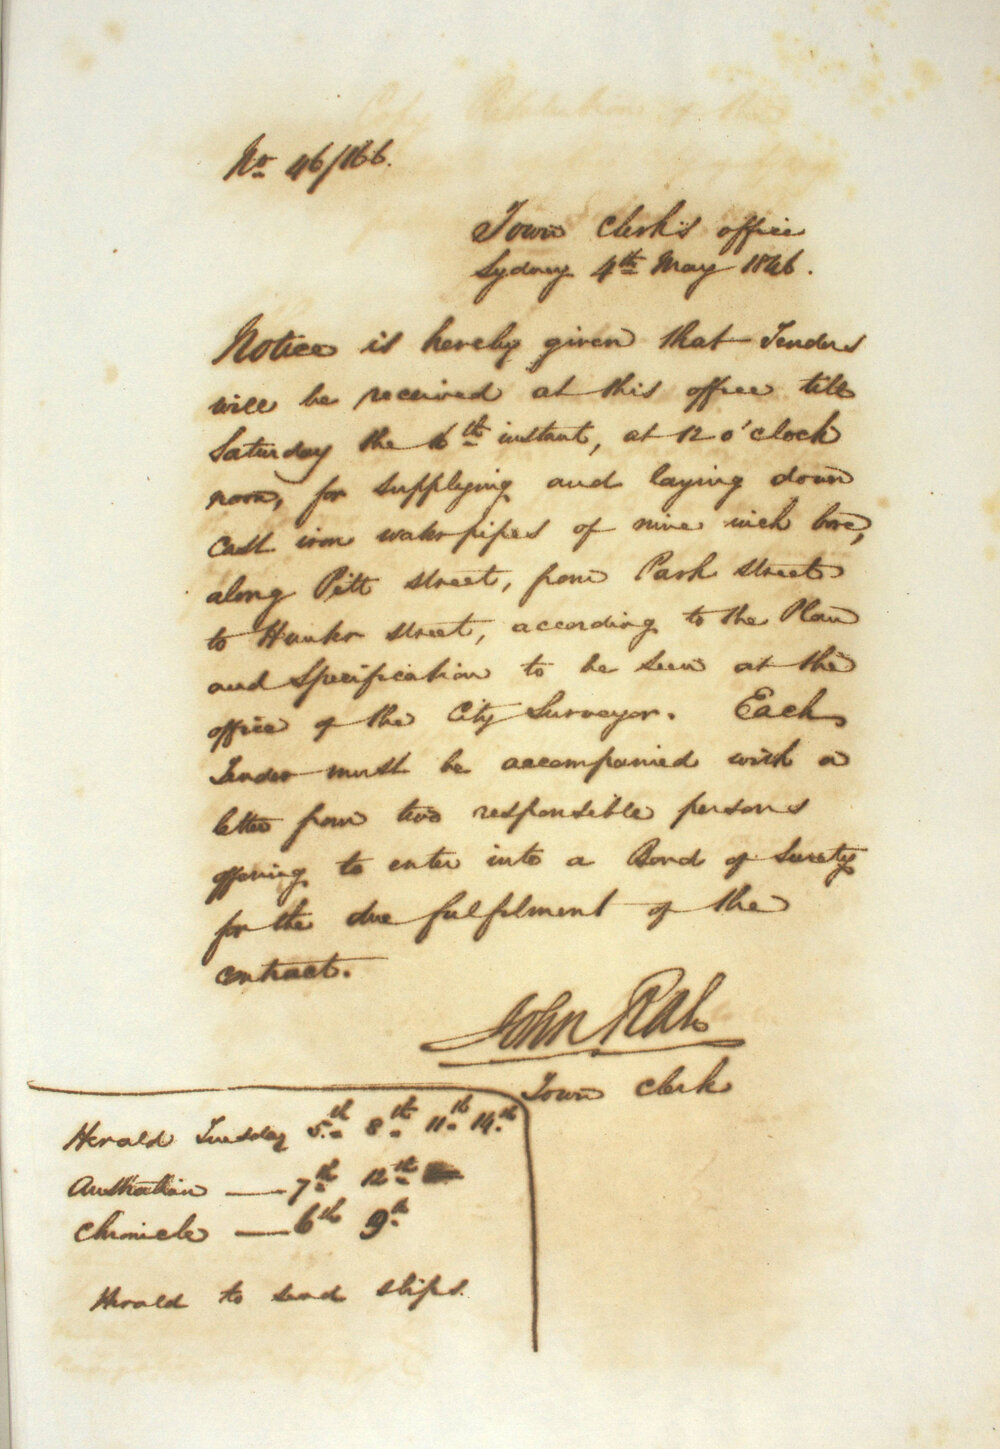 No. 46/166.
Town Clerk's office
Sydney 4th May 1846.
Notice is hereby given that Tenders
will be received at this office till
Saturday the 16th instant, at 12 o'clock
noon, for supplying and laying down
cast iron water pipes of nine inch bore,
along Pitt street, from Park street
to Hunter street, according to the Plan
and Specification to be seen at the
office of the City Surveyor. Each
Tender must be accompanied with a
letter from two responsible persons
offering to enter into a Bond of Surety
for the due fulfilment of the
contract.
John Rae
Town Clerk
Herald Tuesday 5th 8th 11th 14th
Australian — 7th 12th
Chronicle — 6th 9th
Herald to send slips.